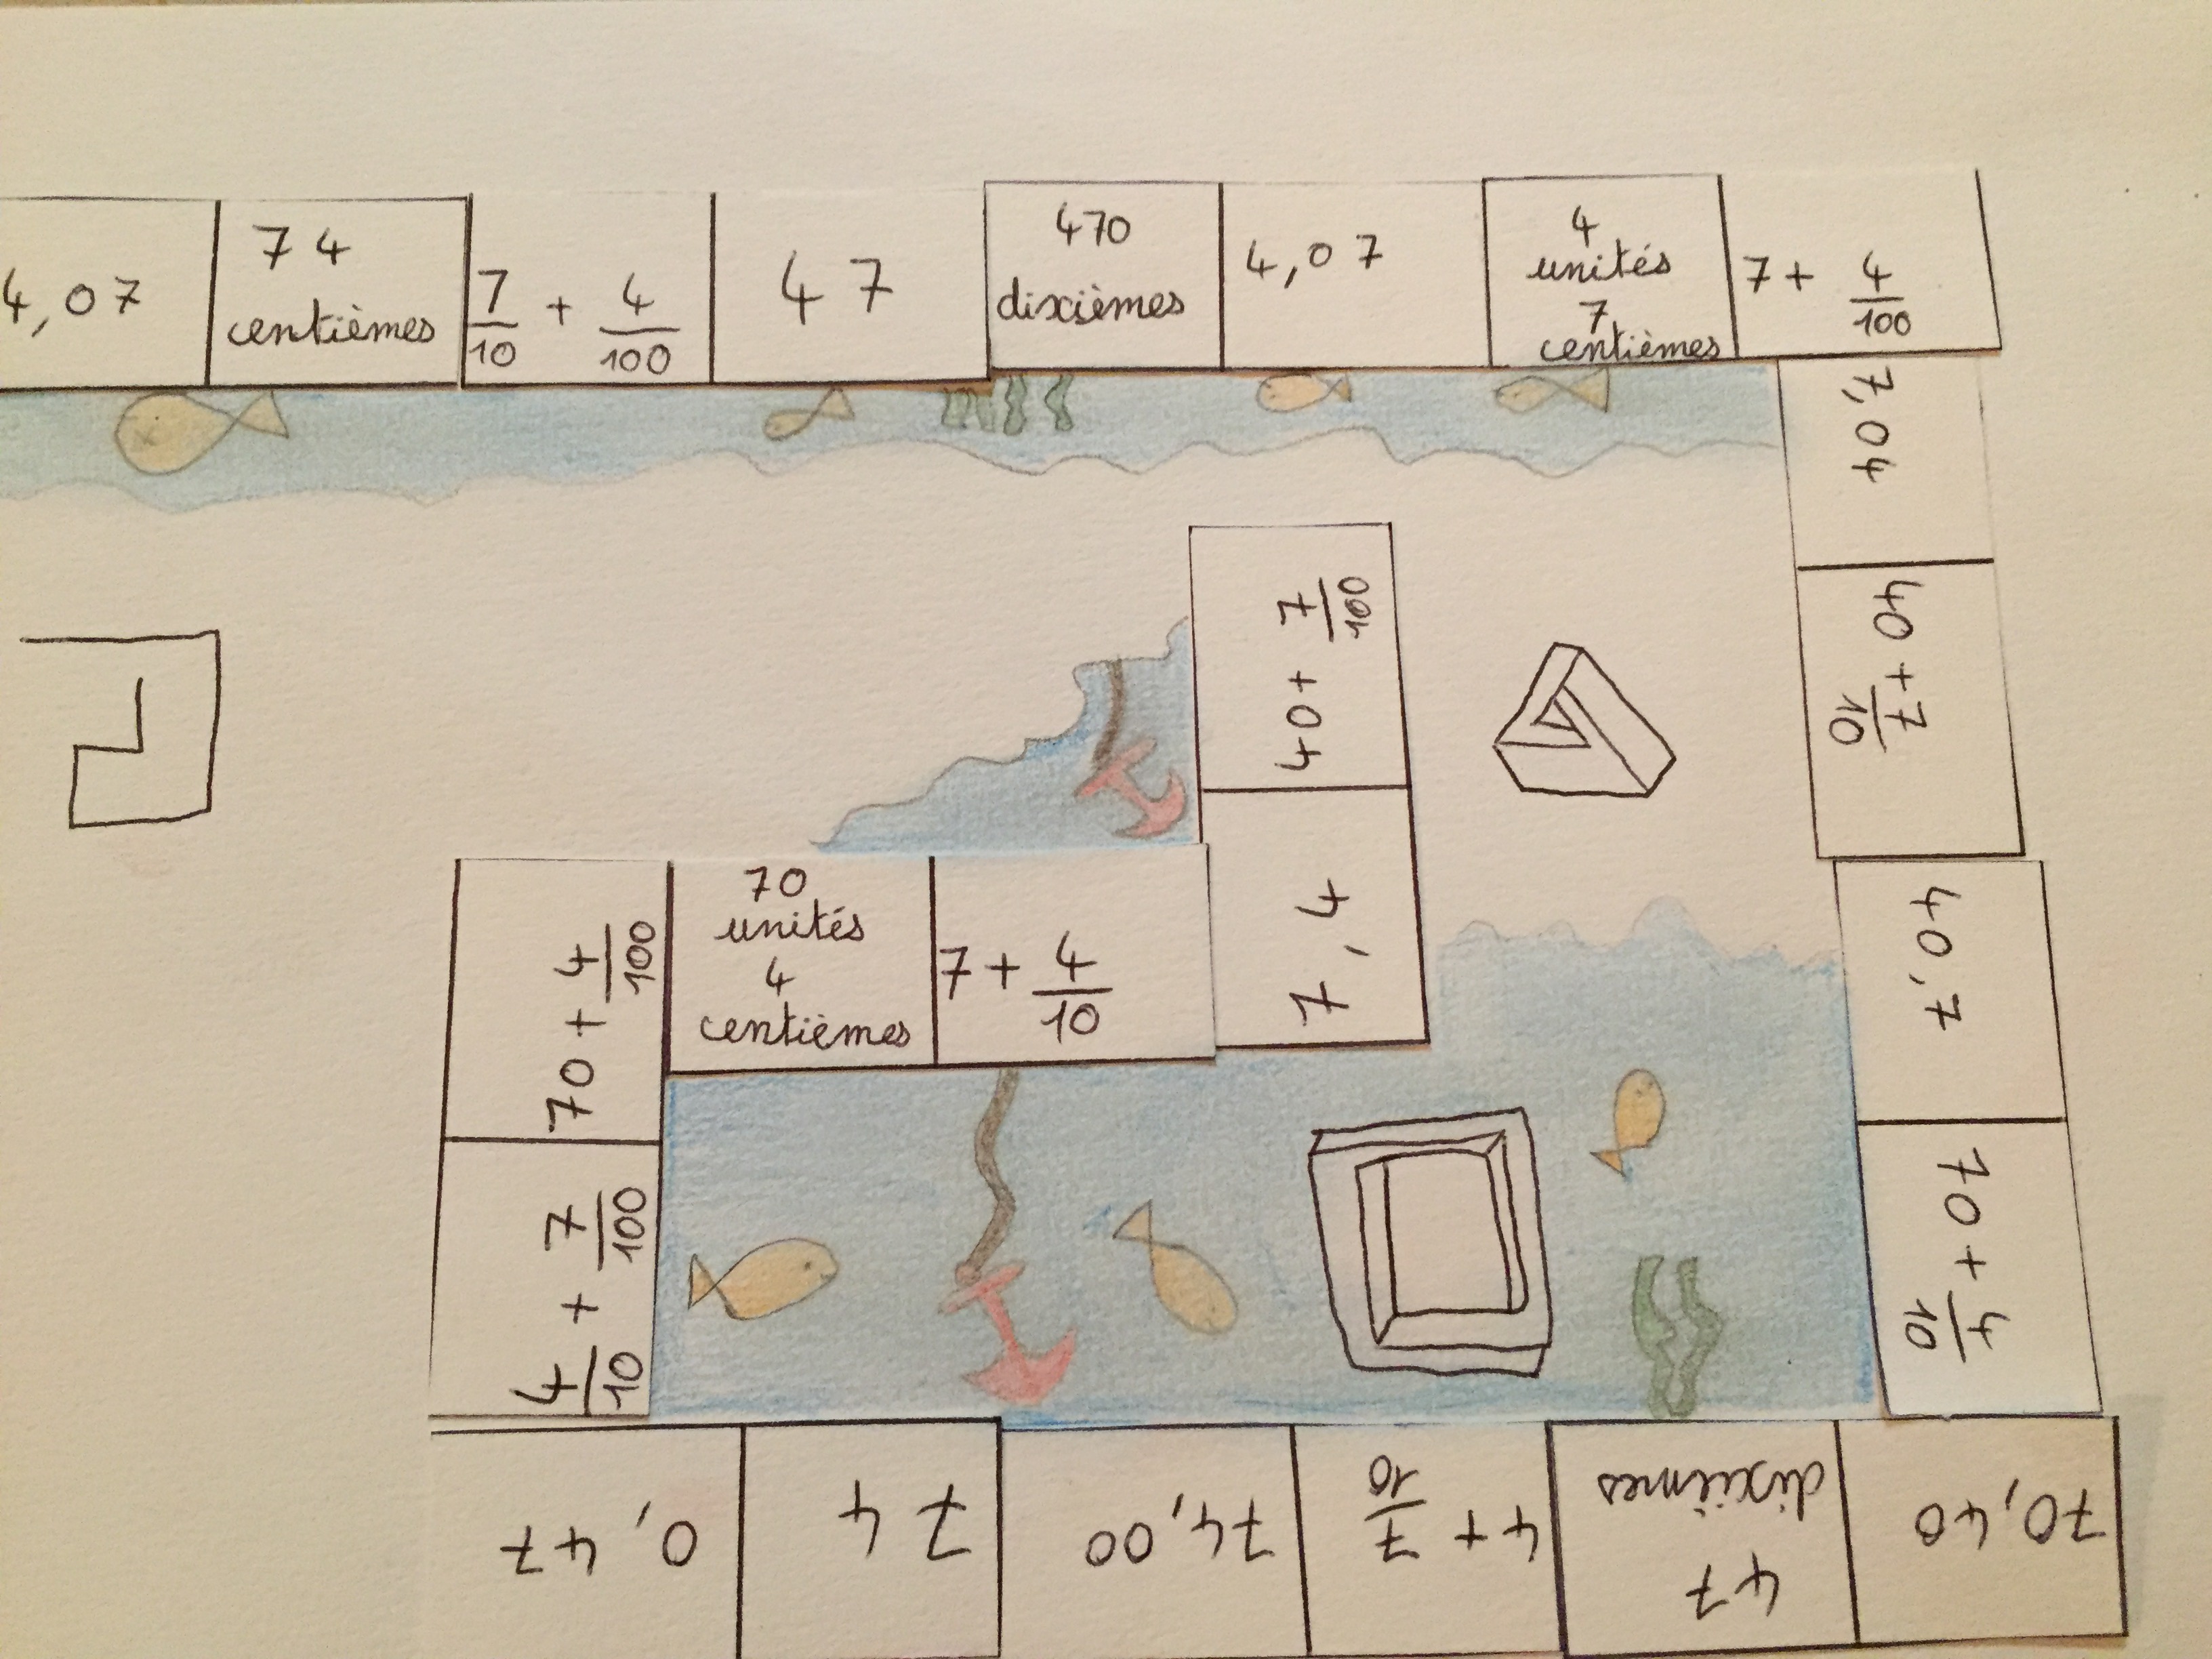 4,07
74
centièmes
7/10 + 4/100
47
470
dixièmes
4,07
4
unités
7
centièmes
7 + 4/100
7,04
40 + 7/10
40,7
70 + 4/10
70,40
47
dixièmes
4 + 7/10
74,00
74
0,47
4/10 + 7/100
70 + 4/100
70
unités
4
centièmes
7 + 4/10
7,4
40 + 7/100